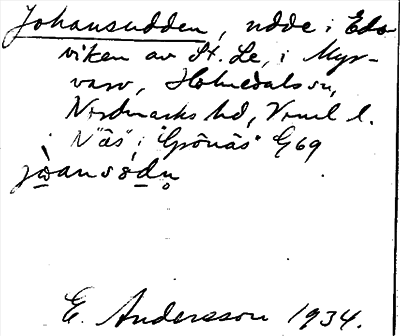 Johansudden, udde i Eds-
viken av St. Le, i Myr-
varv, Holmedals sn,
Nordmarks hd, Vrml l.
"Näs" i "Grönäs" G 69

E. Andersson 1934.